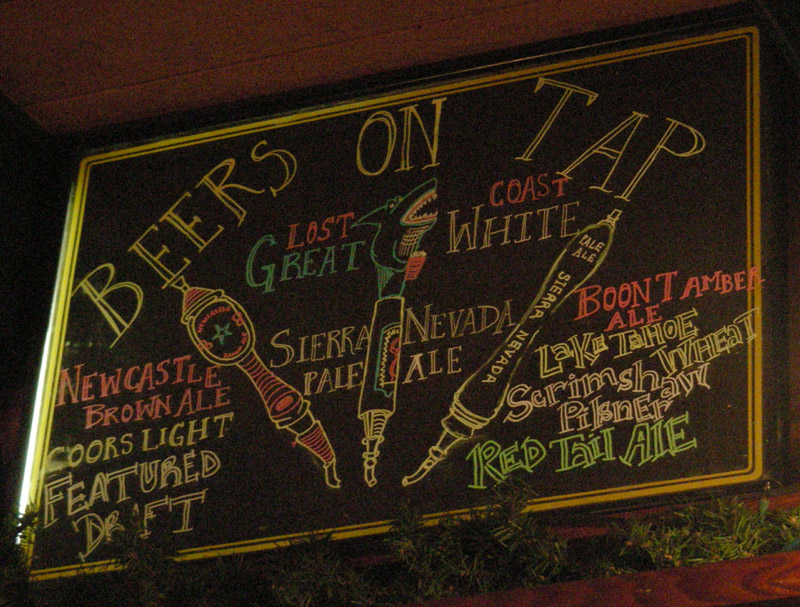 BEERS ON TAP
LOST COAST
GREAT WHITE
SIERRA NEVADA
PALE ALE
NEWCASTLE
BROWN ALE
COORS LIGHT
FEATURED
DRAFT
PALE
ALE
SIERRA NEVADA
BOONT AMBER
ALE
LAKE TAHOE
WHEAT
Scrimshaw
Pilsner
RED TAIL ALE